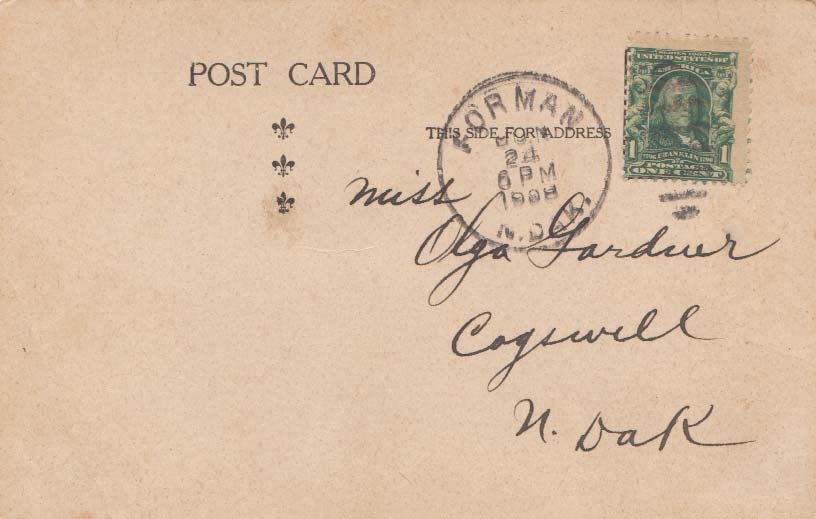 POST CARD
THIS SIDE FOR ADDRESS
FORMAN
24
6 PM
1908
N. DAK.
SERIES 1902
UNITED STATES OF
AMERICA
1 1
FRANKLIN
POSTAGE
ONE CENT
Miss
Olga Gardner
Cogswell
N. Dak